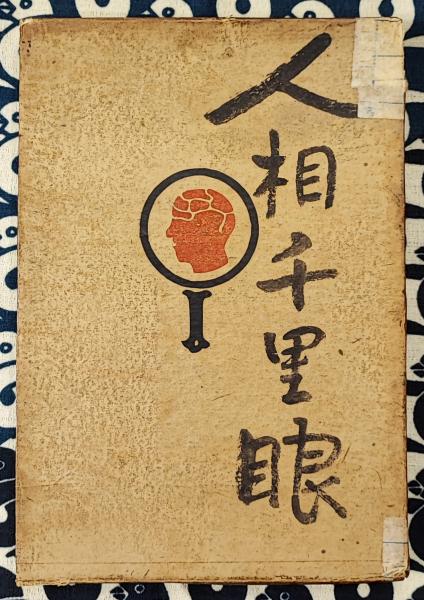 人相千里眼